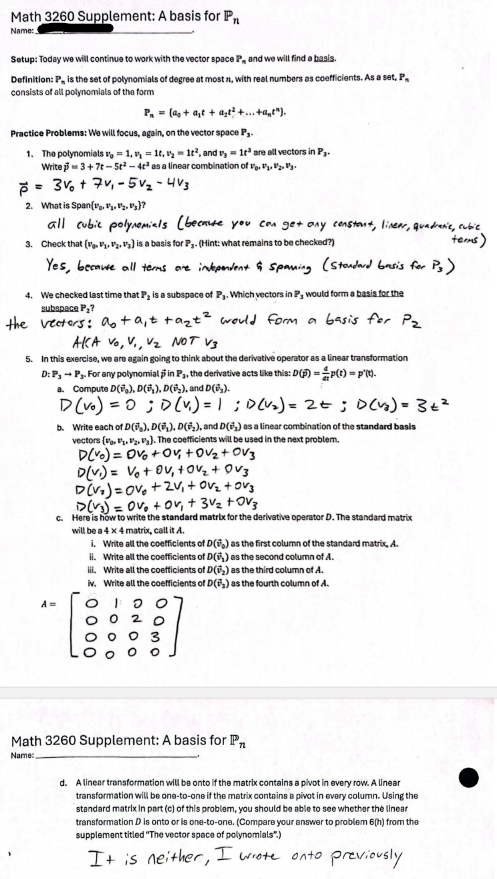 Math 3260 Supplement: A basis for ℙₙ
Name:
Setup: Today we will continue to work with the vector space ℙₙ and we will find a basis.
Definition: ℙₙ is the set of polynomials of degree at most n, with real numbers as coefficients. As a set, ℙₙ
consists of all polynomials of the form
ℙₙ = {a₀ + a₁t + a₂t² + ... +aₙtⁿ}.
Practice Problems: We will focus, again, on the vector space ℙ₃.
1. The polynomials v₀ = 1, v₁ = 1t, v₂ = 1t², and v₃ = 1t³ are all vectors in ℙ₃.
Write p⃗ = 3 + 7t − 5t² − 4t³ as a linear combination of v₀, v₁, v₂, v₃.
p⃗ = 3v₀ + 7v₁ - 5v₂ - 4v₃
2. What is Span{v₀, v₁, v₂, v₃}?
all cubic polynomials (because you can get any constant, linear, quadratic, cubic
terms)
3. Check that {v₀, v₁, v₂, v₃} is a basis for ℙ₃. (Hint: what remains to be checked?)
Yes, because all terms are independent & spanning (Standard basis for P₃)
4. We checked last time that ℙ₂ is a subspace of ℙ₃. Which vectors in ℙ₃ would form a basis for the
subspace ℙ₂?
the vectors: a₀ + a₁t + a₂t² would form a basis for P₂
AKA v₀, v₁, v₂ NOT v₃
5. In this exercise, we are again going to think about the derivative operator as a linear transformation
D: ℙ₃ → ℙ₃. For any polynomial p⃗ in ℙ₃, the derivative acts like this: D(p⃗) = d/dt p(t) = p'(t).
a. Compute D(v⃗₀), D(v⃗₁), D(v⃗₂), and D(v⃗₃).
D(v₀) = 0 ; D(v₁) = 1 ; D(v₂) = 2t ; D(v₃) = 3t²
b. Write each of D(v⃗₀), D(v⃗₁), D(v⃗₂), and D(v⃗₃) as a linear combination of the standard basis
vectors {v₀, v₁, v₂, v₃}. The coefficients will be used in the next problem.
D(v₀) = 0v₀ + 0v₁ + 0v₂ + 0v₃
D(v₁) = v₀ + 0v₁ + 0v₂ + 0v₃
D(v₂) = 0v₀ + 2v₁ + 0v₂ + 0v₃
D(v₃) = 0v₀ + 0v₁ + 3v₂ + 0v₃
c. Here is how to write the standard matrix for the derivative operator D. The standard matrix
will be a 4 × 4 matrix, call it A.
i. Write all the coefficients of D(v⃗₀) as the first column of the standard matrix, A.
ii. Write all the coefficients of D(v⃗₁) as the second column of A.
iii. Write all the coefficients of D(v⃗₂) as the third column of A.
iv. Write all the coefficients of D(v⃗₃) as the fourth column of A.
A = [ 0 1 0 0
0 0 2 0
0 0 0 3
0 0 0 0 ]
Math 3260 Supplement: A basis for ℙₙ
Name:
d. A linear transformation will be onto if the matrix contains a pivot in every row. A linear
transformation will be one-to-one if the matrix contains a pivot in every column. Using the
standard matrix in part (c) of this problem, you should be able to see whether the linear
transformation D is onto or is one-to-one. (Compare your answer to problem 6(h) from the
supplement titled "The vector space of polynomials".)
It is neither, I wrote onto previously